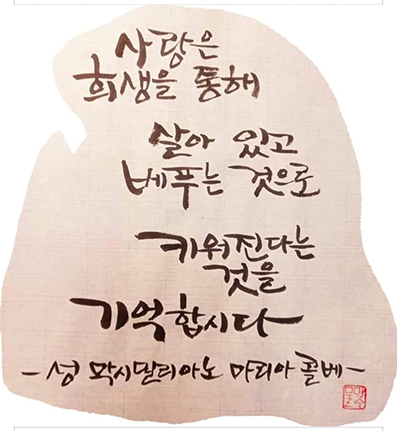 사랑은
희생을 통해
살아 있고
베푸는 것으로
키워진다는
것을
기억합시다
- 성 막시밀리아노 마리아 콜베 -